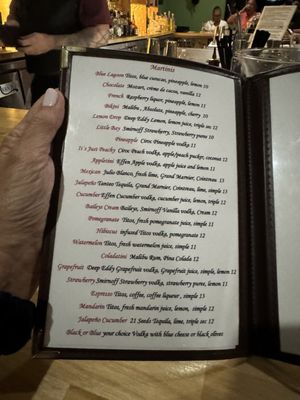 Martinis
Blue Lagoon Titos, blue curacao, pineapple, lemon 10
Chocolate Mozart, crème de cacao, vanilla 12
French Raspberry liquor, pineapple, lemon 11
Bikini Malibu, Absolute, pineapple, cherry 10
Lemon Drop Deep Eddy Lemon, lemon juice, triple sec 12
Little Bay Smirnoff Strawberry, Strawberry puree 10
Pineapple Ciroc Pineapple vodka 11
It's Just Peachy Ciroc Peach vodka, apple/peach pucker, coconut 12
Appletini Effen Apple vodka, apple juice and lemon 11
Mexican Julio Blanco, fresh lime, Grand Marnier, Cointreau 13
Jalapeño Tanteo Tequila, Grand Marnier, Cointreau, lime, simple 13
Cucumber Effen Cucumber vodka, cucumber juice, lemon, triple 12
Baileys Cream Baileys, Smirnoff Vanilla vodka, Cream 12
Pomegranate Titos, fresh pomegranate juice, simple 11
Hibiscus infused Titos vodka, pomegranate 12
Watermelon Titos, fresh watermelon juice, simple 11
Coladatini Malibu Rum, Pina Colada 12
Grapefruit Deep Eddy Grapefruit vodka, Grapefruit juice, simple, lemon 12
Strawberry Smirnoff Strawberry vodka, strawberry puree, lemon 11
Espresso Titos, coffee, coffee liqueur, simple 13
Mandarin Titos, fresh mandarin juice, lemon, simple 12
Jalapeño Cucumber 21 Seeds Tequila, lime, triple sec 12
Black or Blue your choice Vodka with blue cheese or black olives